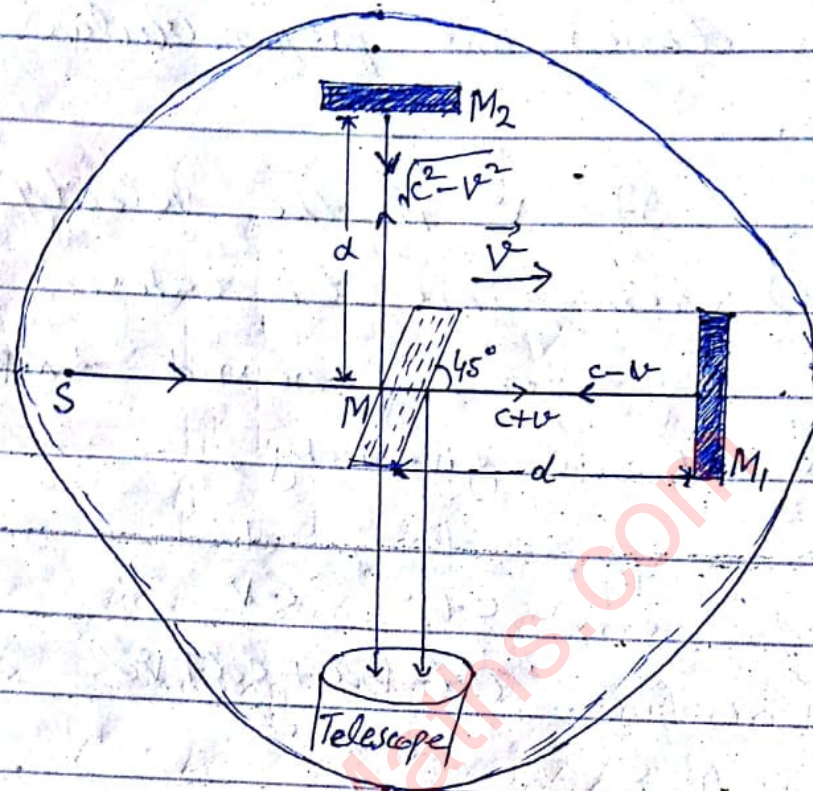 M₂
√(c²-v²)
d
v⃗
45°
c-v
S
M
c+v
d
M₁
Telescope
Maths.com